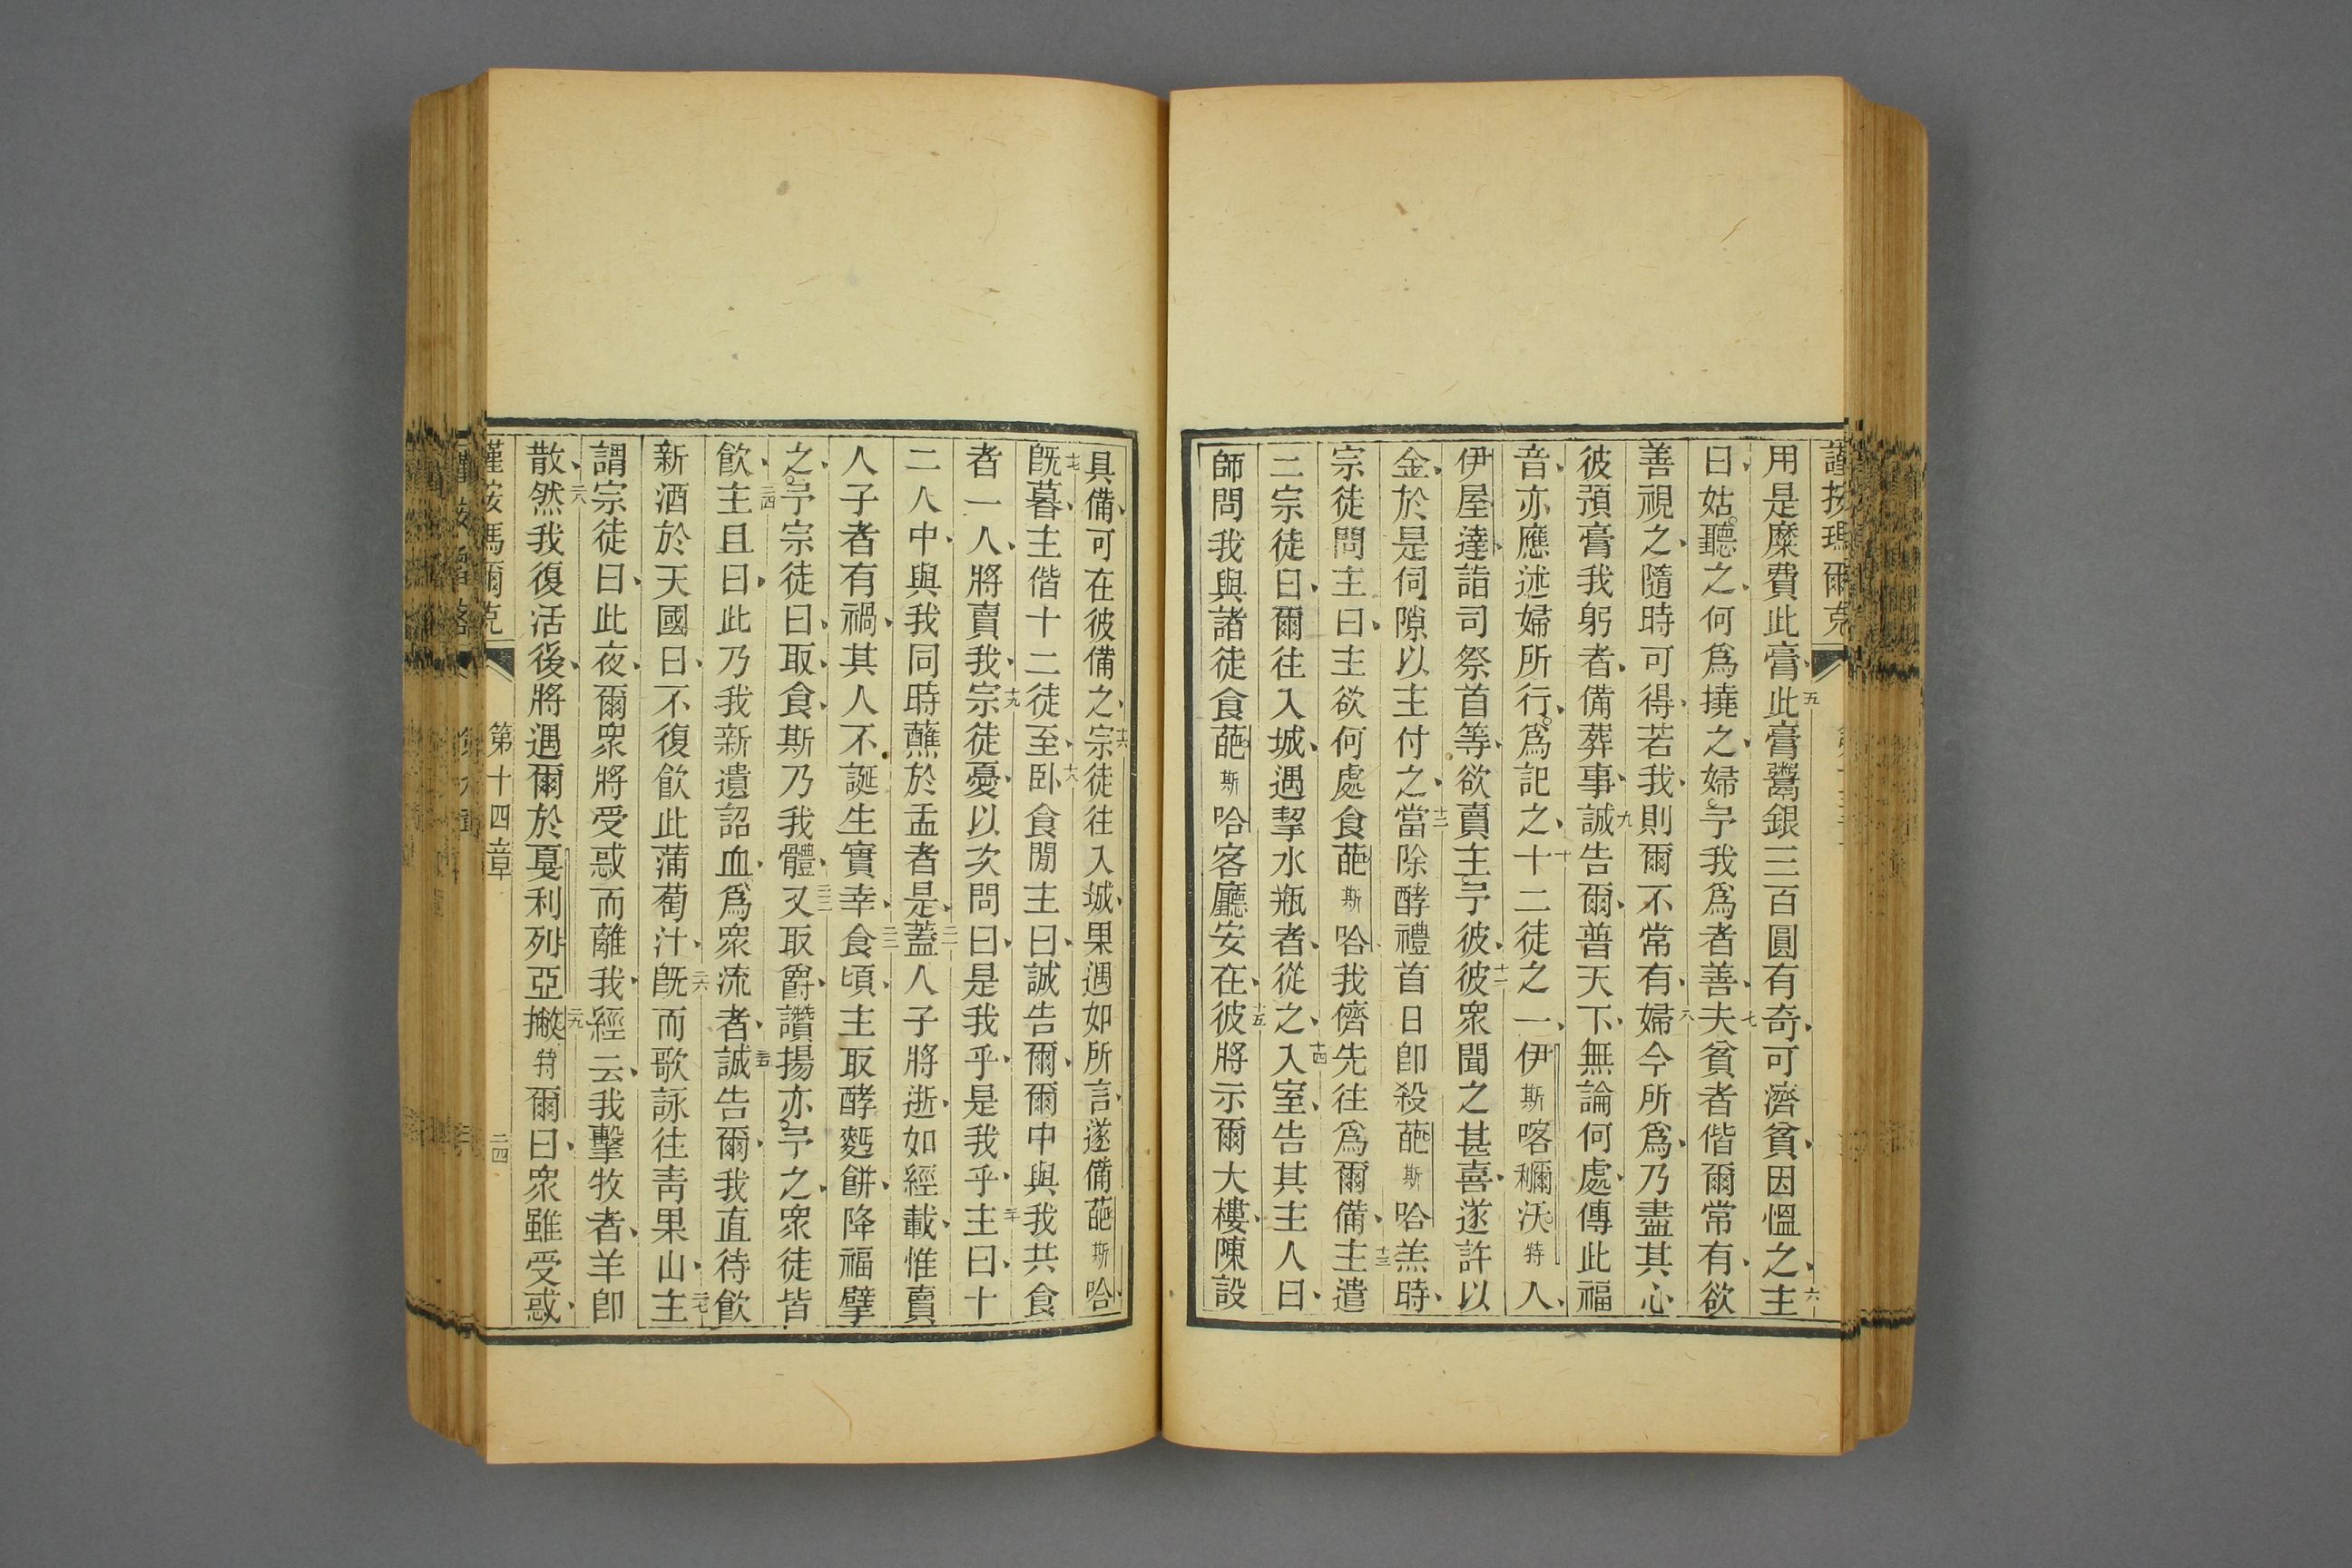 謹按瑪爾克
用是糜費此膏五此膏鬻銀三百圓有奇可濟貧因慍之六主
曰姑聽之何爲撓之婦予我爲者善七夫貧者偕爾常有欲
善視之隨時可得若我則爾不常有八婦今所爲乃盡其心
彼預膏我躬者備葬事九誠告爾普天下無論何處傳此福
音亦應述婦所行爲記之十十二徒之一伊斯喀穪沃特人
伊屋達詣司祭首等欲賣主予彼十一彼衆聞之甚喜遂許以
金於是伺隙以主付之十二當除酵禮首日即殺葩斯哈羔時
宗徒問主曰主欲何處食葩斯哈我儕先往爲爾備十三主遣
二宗徒曰爾往入城遇挈水瓶者從之十四入室告其主人曰
師問我與諸徒食葩斯哈客廳安在十五彼將示爾大樓陳設
具備可在彼備之十六宗徒往入城果遇如所言遂備葩斯哈
十七旣暮主偕十二徒至十八卧食閒主曰誠告爾爾中與我共食
者一人將賣我十九宗徒憂以次問曰是我乎是我乎二十主曰十
二人中與我同時蘸於盂者是二一蓋人子將逝如經載惟賣
人子者有禍其人不誕生實幸二二食頃主取酵麪餅降福擘
之予宗徒曰取食斯乃我體二三又取爵讚揚亦予之衆徒皆
飲二四主且曰此乃我新遺詔血爲衆流者二五誠告爾我直待飲
新酒於天國日不復飲此蒲萄汁二六旣而歌詠往靑果山二七主
謂宗徒曰此夜爾衆將受惑而離我經云我擊牧者羊卽
散二八然我復活後將遇爾於戛利列亞二九撇特爾曰衆雖受惑
謹按瑪爾克 第十四章 二四